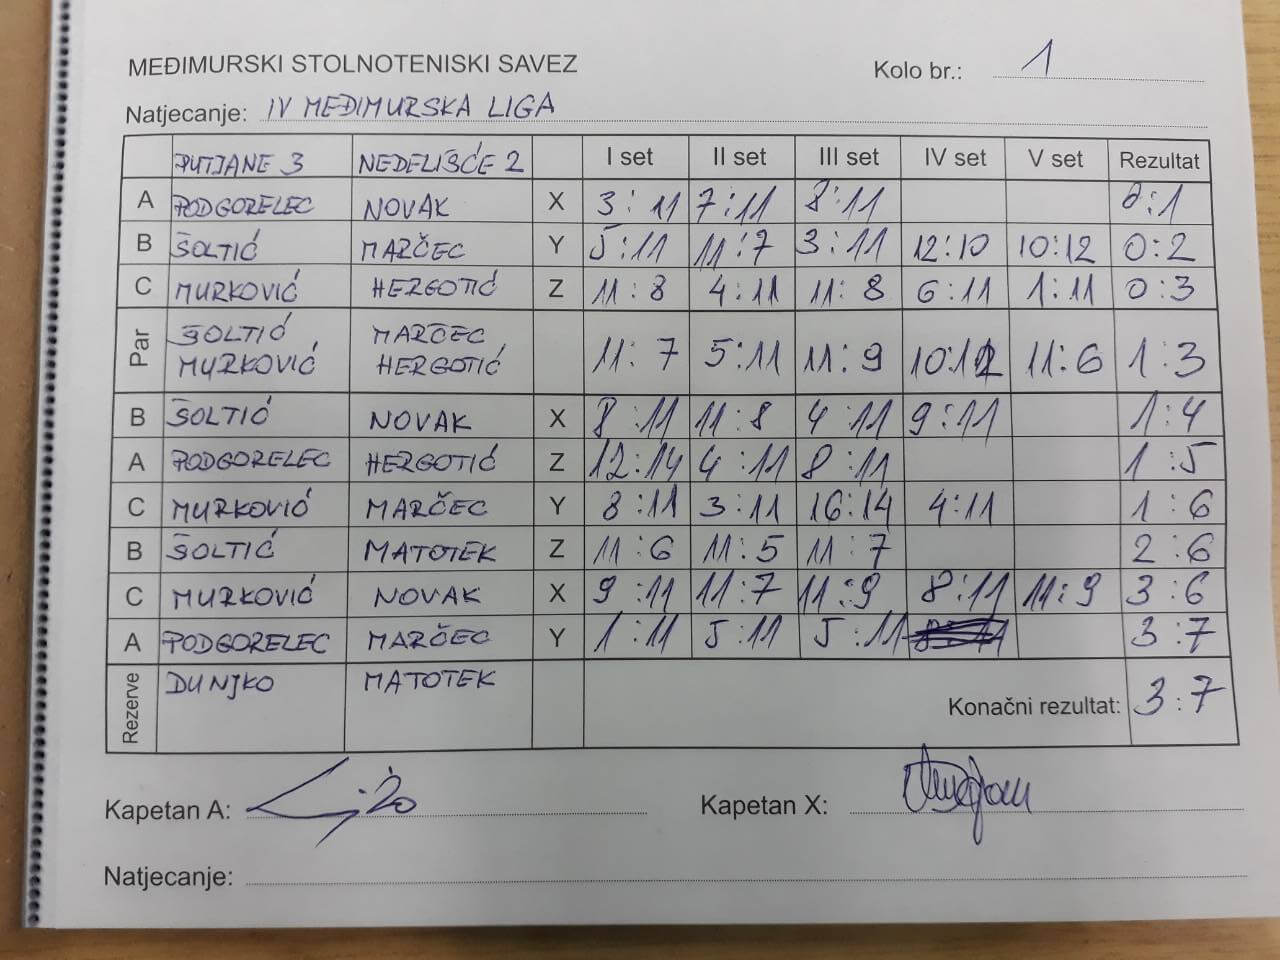 MEĐIMURSKI STOLNOTENISKI SAVEZ
Kolo br.: 1
Natjecanje: IV MEĐIMURSKA LIGA
PUTJANE 3 NEDELIŠĆE 2 I set II set III set IV set V set Rezultat
A PODGORELEC NOVAK X 3:11 7:11 8:11 0:1
B ŠOLTIĆ MARČEC Y 5:11 11:7 3:11 12:10 10:12 0:2
C MURKOVIĆ HERGOTIĆ Z 11:8 4:11 11:8 6:11 1:11 0:3
Par ŠOLTIĆ MARČEC
MURKOVIĆ HERGOTIĆ 11:7 5:11 11:9 10:12 11:6 1:3
B ŠOLTIĆ NOVAK X 8:11 11:8 4:11 9:11 1:4
A PODGORELEC HERGOTIĆ Z 12:14 4:11 8:11 1:5
C MURKOVIĆ MARČEC Y 8:11 3:11 16:14 4:11 1:6
B ŠOLTIĆ MATOTEK Z 11:6 11:5 11:7 2:6
C MURKOVIĆ NOVAK X 9:11 11:7 11:9 8:11 11:9 3:6
A PODGORELEC MARČEC Y 1:11 5:11 5:11 3:7
Rezerve DUNJKO MATOTEK
Konačni rezultat: 3:7
Kapetan A:
Kapetan X:
Natjecanje: